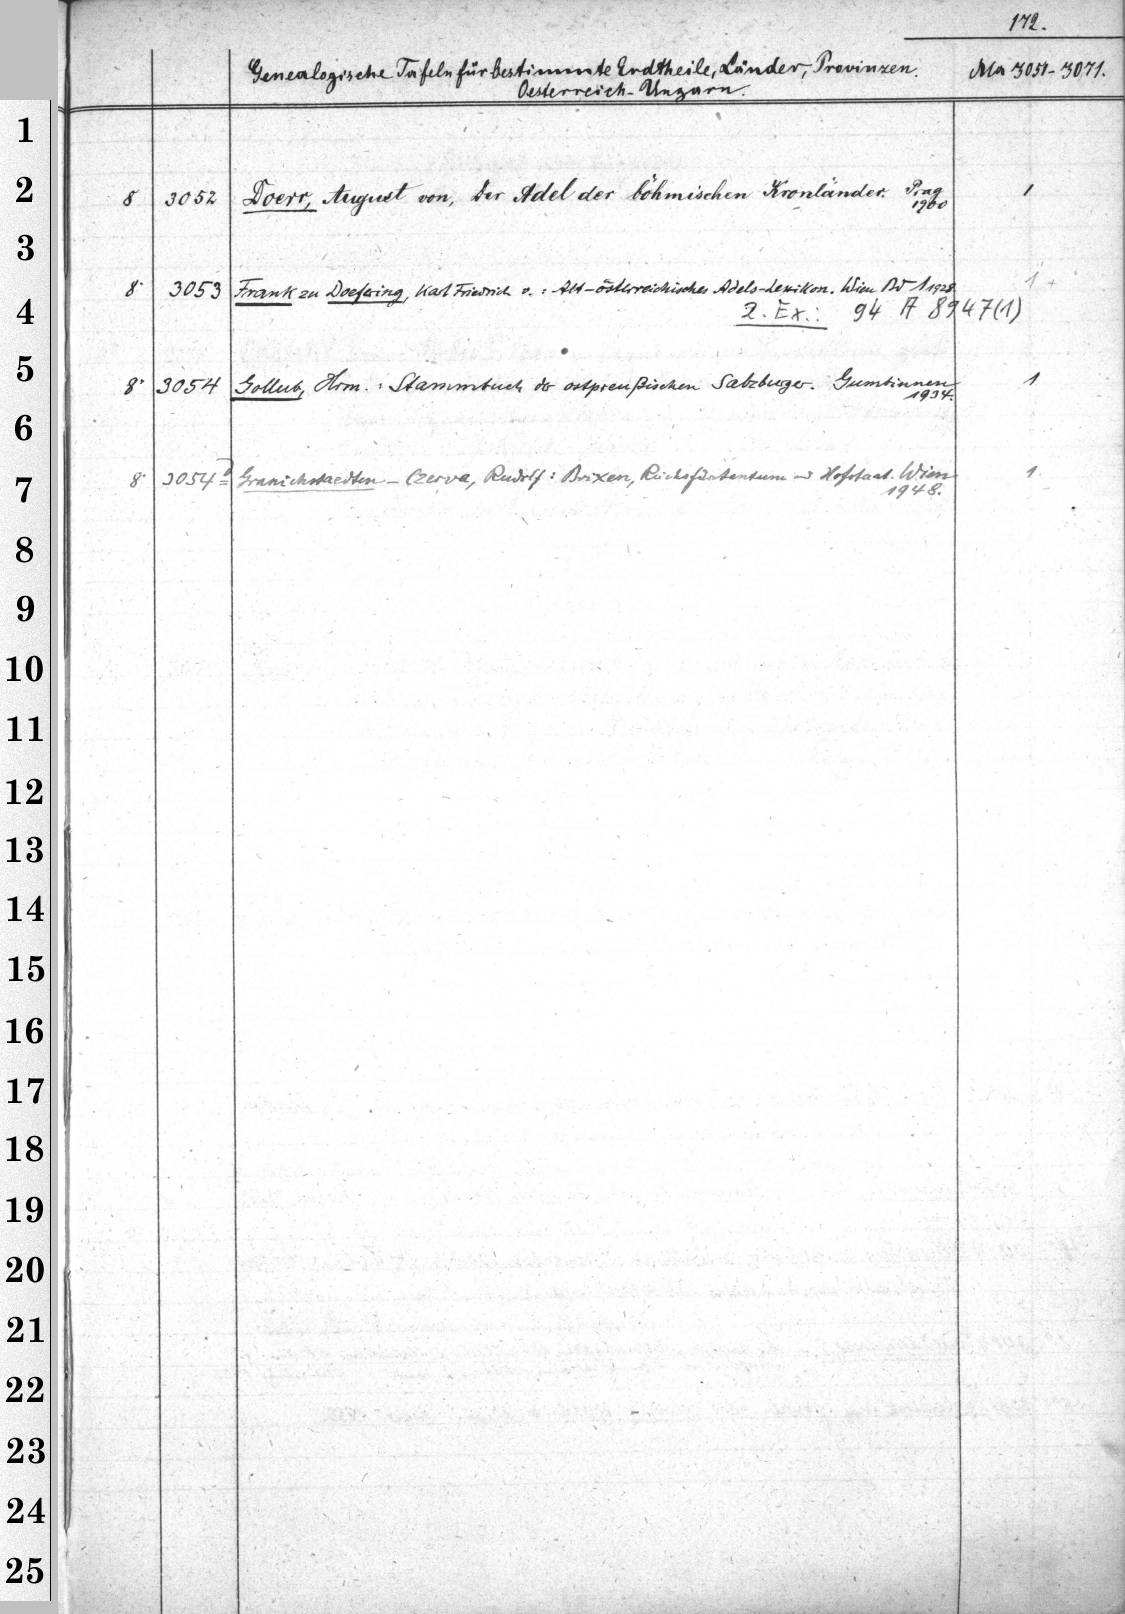 172.
Genealogische Tafeln für bestimmte Erdtheile, Länder, Provinzen. Ma 3051-3071.
Oesterreich-Ungarn.
1
2 8 3052 Doerr, August von, Der Adel der böhmischen Kronländer. Prag 1
1900
3
8° 3053 Frank zu Doefering, Karl Friedrich v.: Alt-österreichisches Adels-Lexikon. Wien Bd 1 1928 1 +
4 2. Ex.: 94 A 8947(1)
5
8° 3054 Gollub, Hrm.: Stammbuch der ostpreußischen Salzburger. Gumbinnen 1
1934.
6
7 8° 3054 a Granichstaedten-Czerva, Rudolf: Brixen, Reichsfürstentum und Hofstaat. Wien 1
1948.
8
9
10
11
12
13
14
15
16
17
18
19
20
21
22
23
24
25